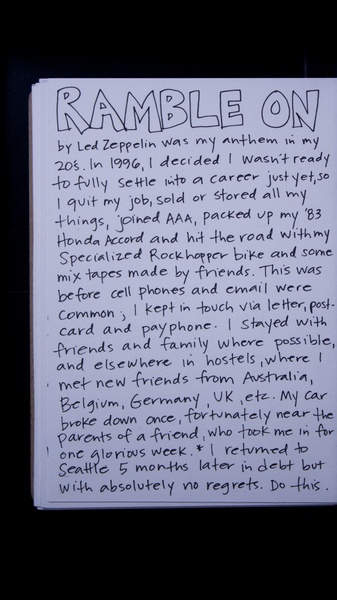 RAMBLE ON
by Led Zeppelin was my anthem in my
20's. In 1996, I decided I wasn't ready
to fully settle into a career just yet, so
I quit my job, sold or stored all my
things, joined AAA, packed up my '83
Honda Accord and hit the road with my
Specialized Rockhopper bike and some
mix tapes made by friends. This was
before cell phones and email were
common; I kept in touch via letter, post-
card and payphone. I stayed with
friends and family where possible,
and elsewhere in hostels, where I
met new friends from Australia,
Belgium, Germany, UK, etc. My car
broke down once, fortunately near the
parents of a friend, who took me in for
one glorious week.* I returned to
Seattle 5 months later in debt but
with absolutely no regrets. Do this.